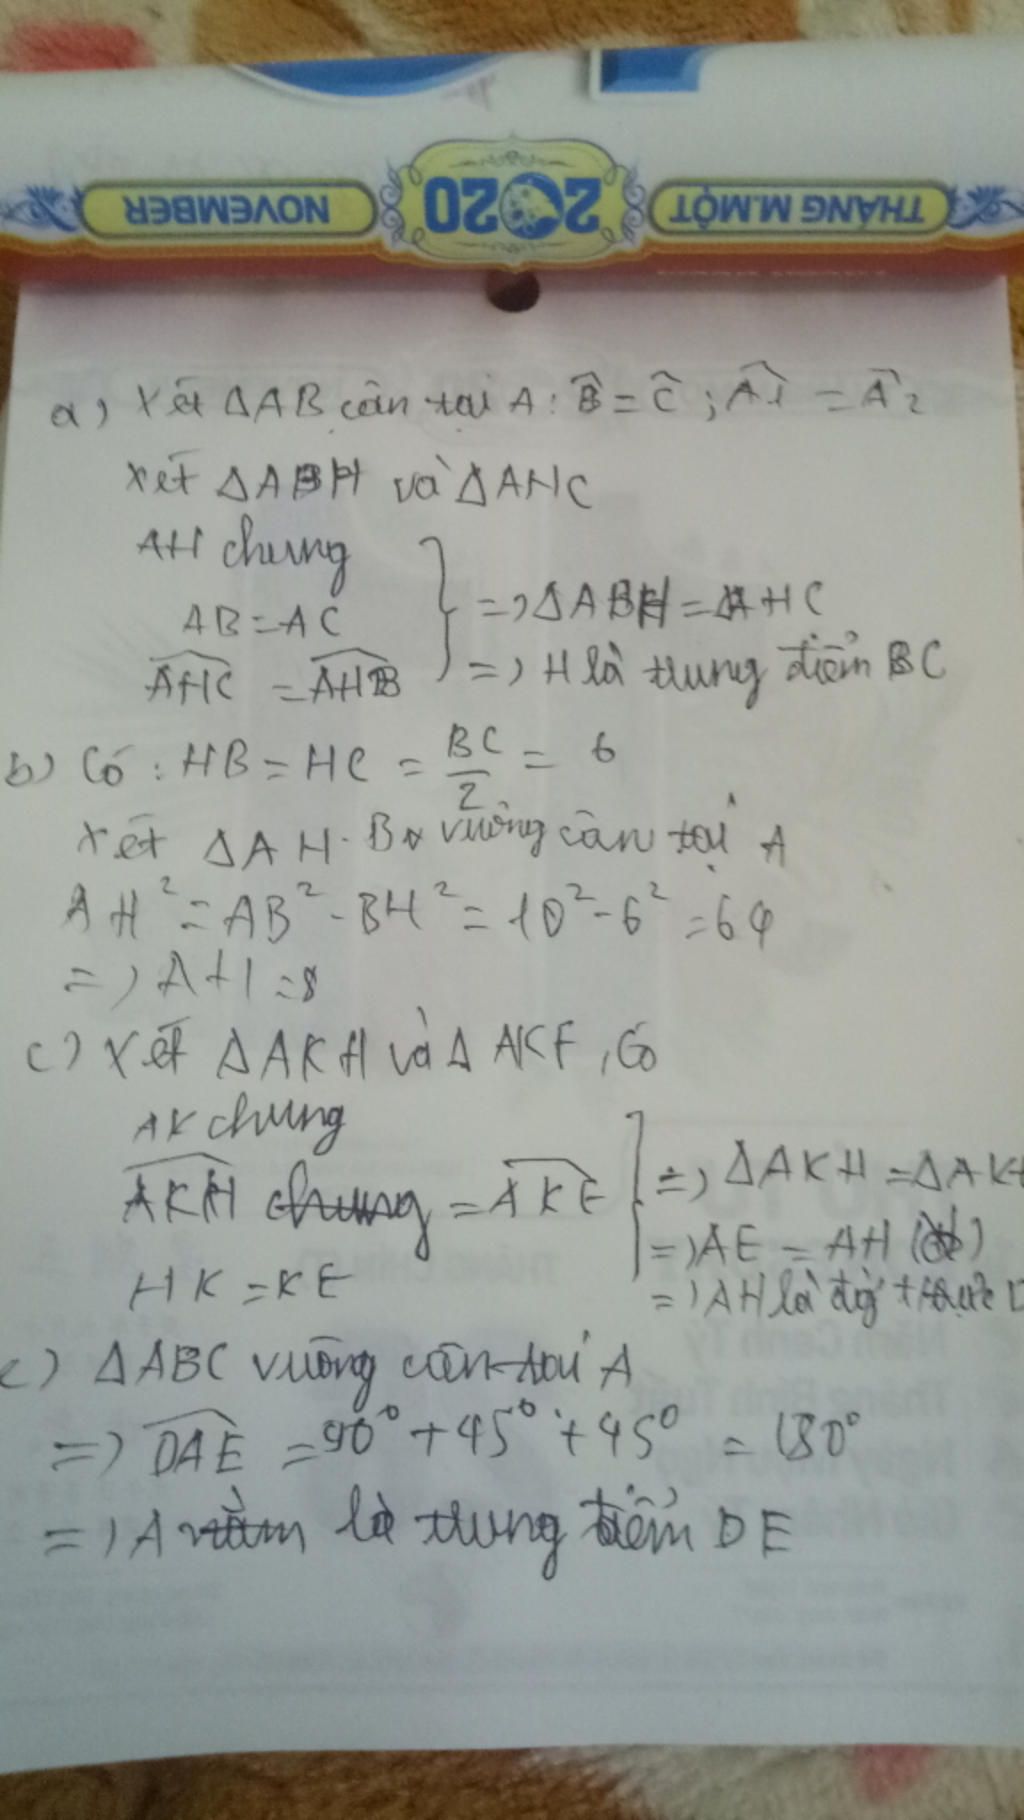 THÁNG M.MỘT 2020 NOVEMBER
a) Xét ΔAB cân tại A: B̂ = Ĉ ; Â1 = Â2
Xét ΔABH và ΔAHC
AH chung
AB = AC
AHC = AHB
=> ΔABH = ΔAHC
=> H là trung điểm BC
b) Có : HB = HC = BC/2 = 6
Xét ΔAHB vuông cân tại A
AH² = AB² - BH² = 10² - 6² = 64
=> AH = 8
c) Xét ΔAKH và ΔAKE, Có
AK chung
AKH chung = AKE
HK = KE
=> ΔAKH = ΔAK
=> AE = AH
=> AH là
c) ΔABC vuông cân tại A
=> DAE = 90° + 45° + 45° = 180°
=> A nằm là trung điểm DE